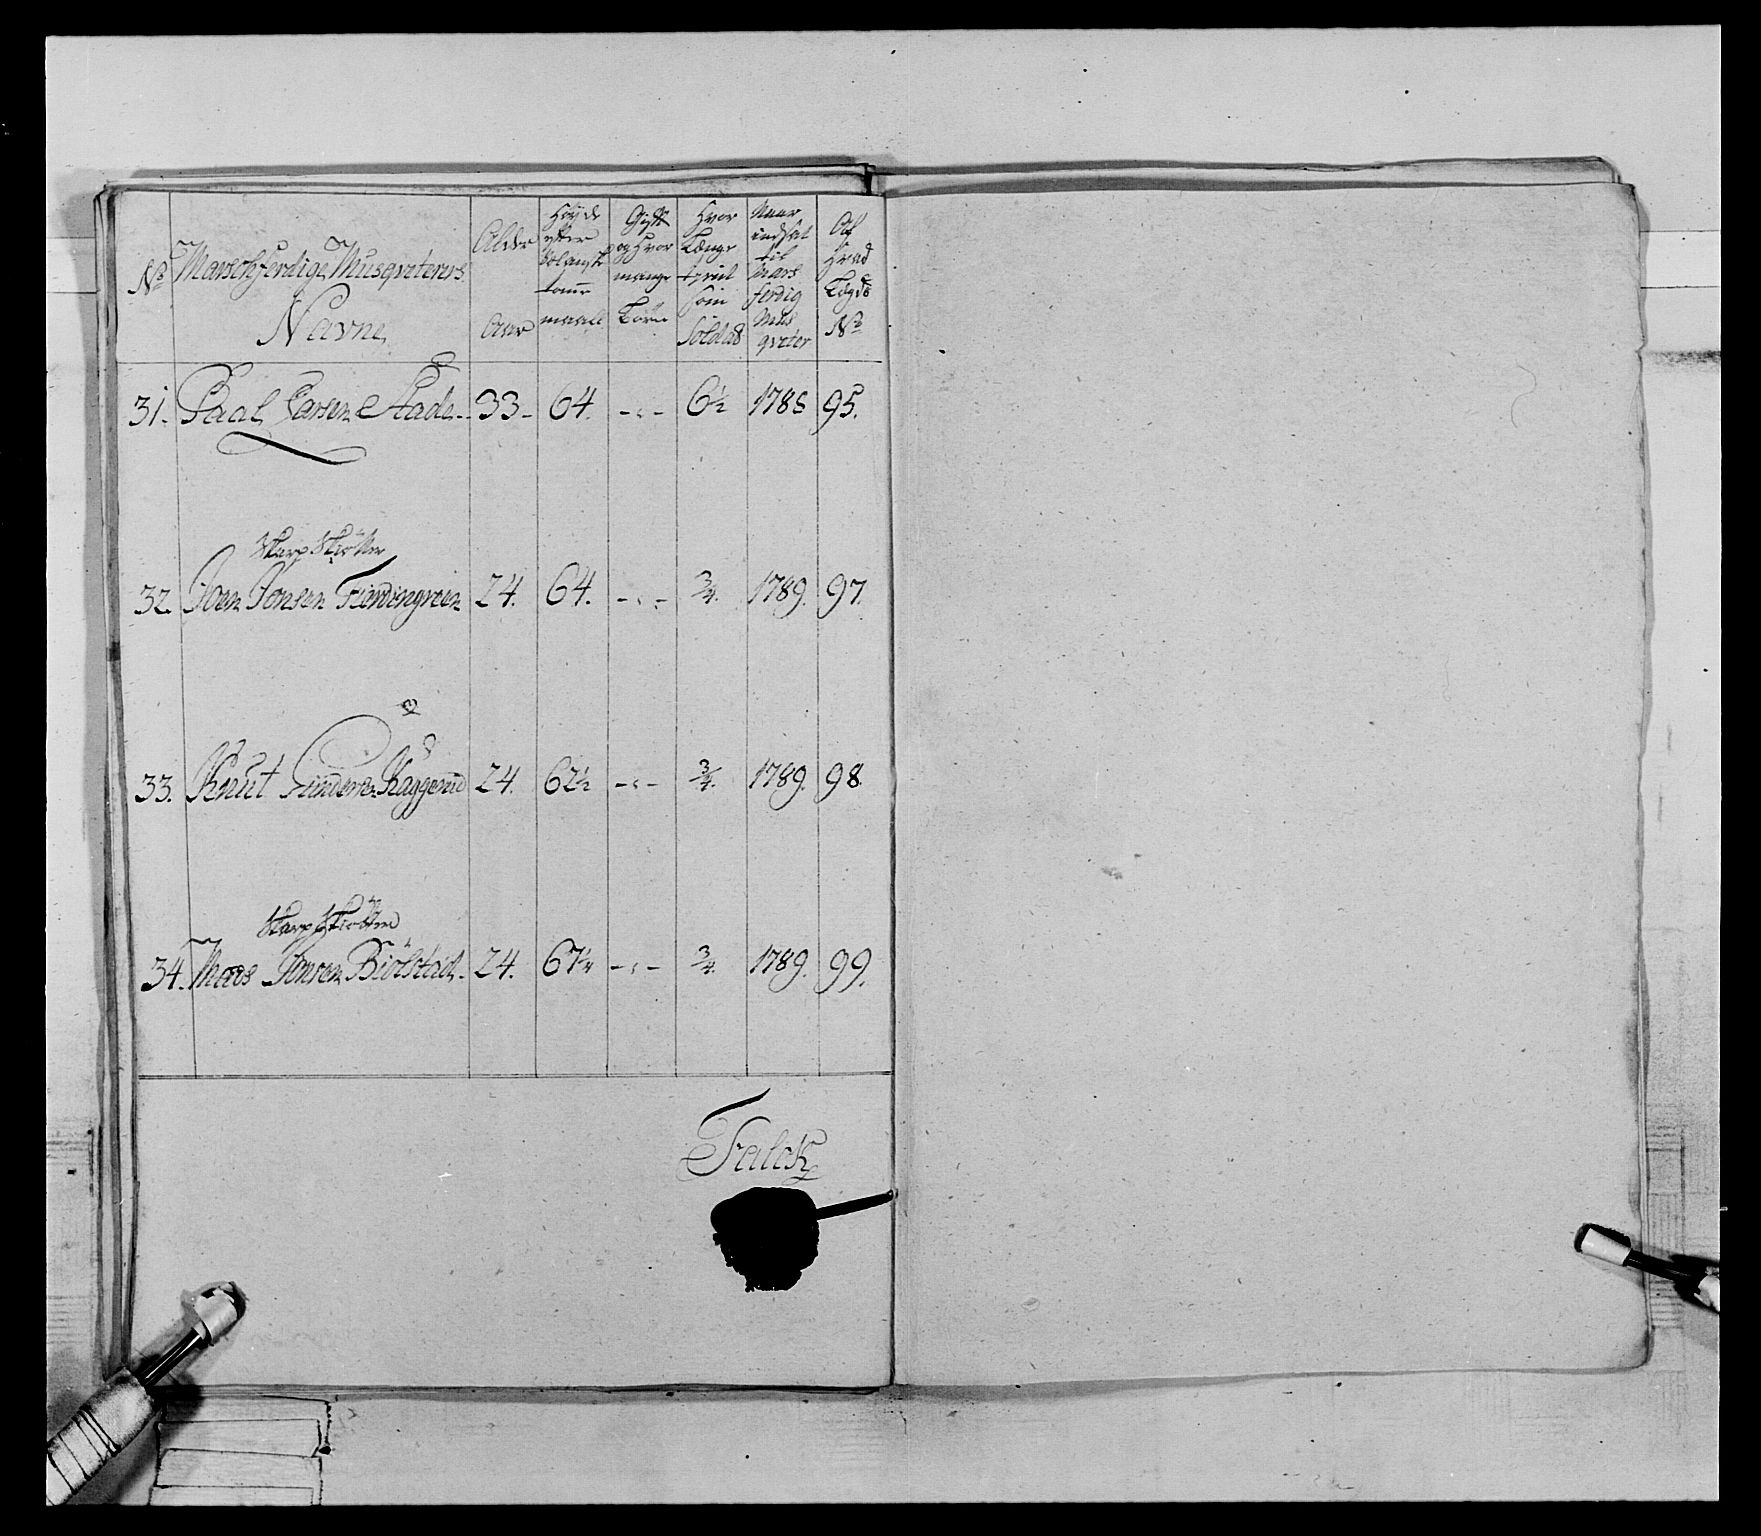 No
Marschferdige Musqveterers
Navne
Alder
Aar
Høyde
efter
maall
Gift
og Hvor
mange
Børn
Hvor
Længe
tient
som
Soldat
Naar
indsat
til
Mars
ferdig
Mus
qveter
Af
Hvad
Lægds
No
31. Paal Larsen Stade 33 64. 6½ 1785 95.
Skarp Skiøtter
32. Joen Jonsen 24. 64. ¾. 1789. 97.
33. Knut Gunders. Kaggerud 24. 62½ ¾. 1789. 98.
Skarp Skiøtter
34. Jonsen Biølstad 24. 67¼ ¾. 1789. 99.
Falck